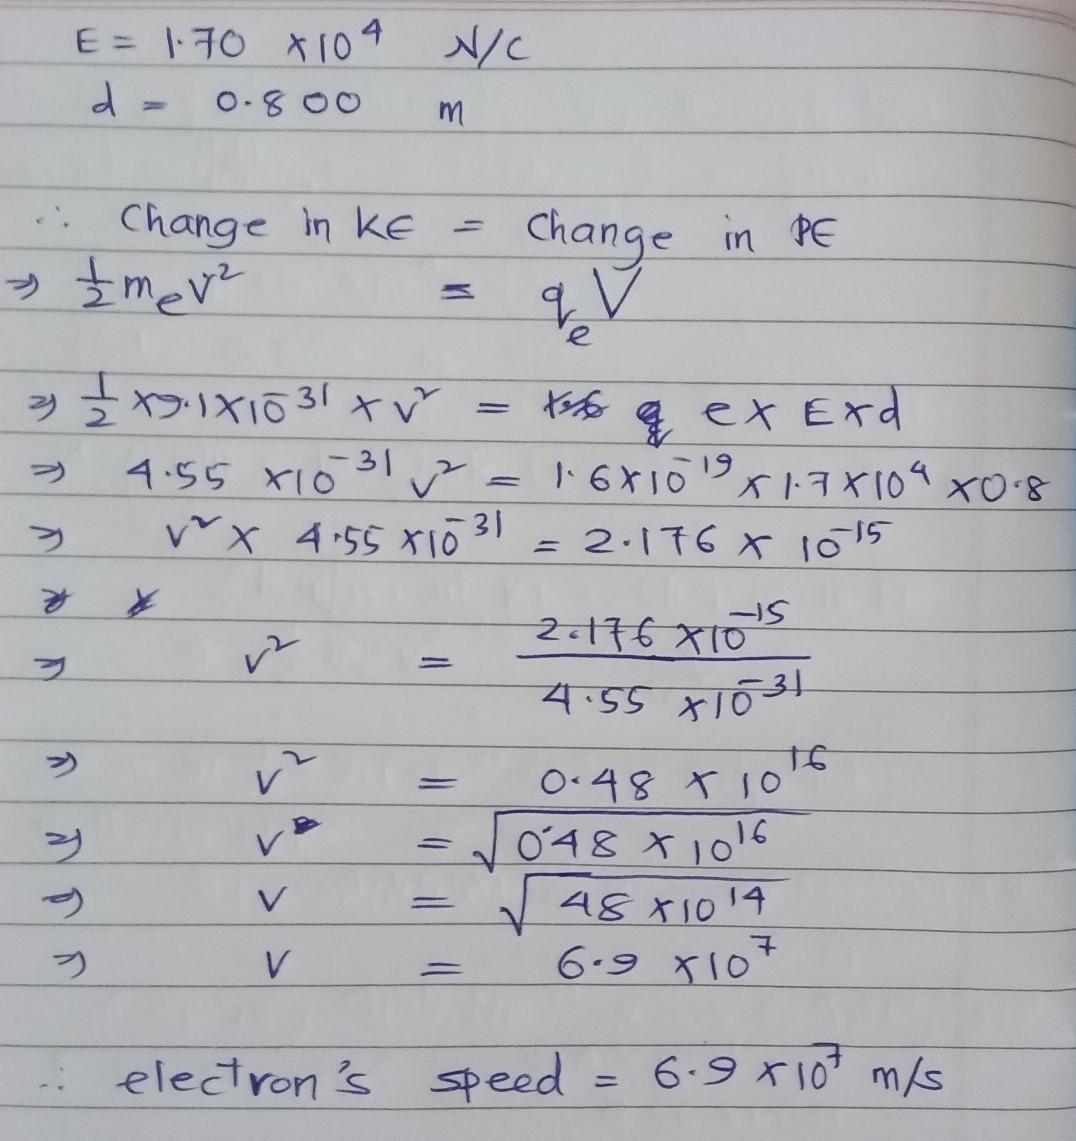 E = 1.70 × 10⁴ N/C
d = 0.800 m
∴ Change in KE = Change in PE
⇒ ½ mₑv² = qₑV
⇒ ½ × 9.1 × 10⁻³¹ × v² = e × E × d
⇒ 4.55 × 10⁻³¹ v² = 1.6 × 10⁻¹⁹ × 1.7 × 10⁴ × 0.8
⇒ v² × 4.55 × 10⁻³¹ = 2.176 × 10⁻¹⁵
⇒ v² = 2.176 × 10⁻¹⁵ / 4.55 × 10⁻³¹
⇒ v² = 0.48 × 10¹⁶
⇒ v = √0.48 × 10¹⁶
⇒ v = √48 × 10¹⁴
⇒ v = 6.9 × 10⁷
∴ electron's speed = 6.9 × 10⁷ m/s